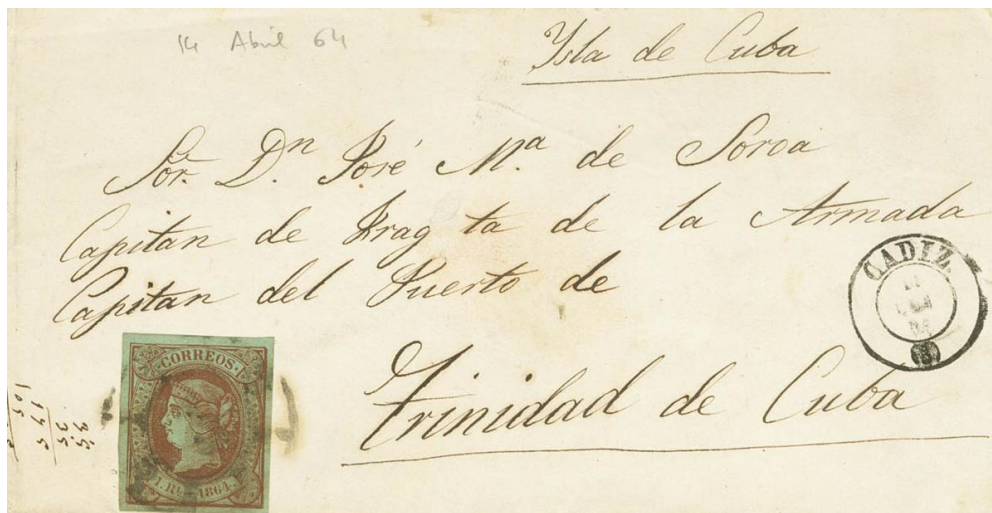 14 Abril 64
Ysla de Cuba
Sor. Dn José Ma. de Soroa
Capitan de Frag ta de la Armada
Capitan del Puerto de
Trinidad de Cuba
CADIZ
CORREOS
1. RL. 1864.